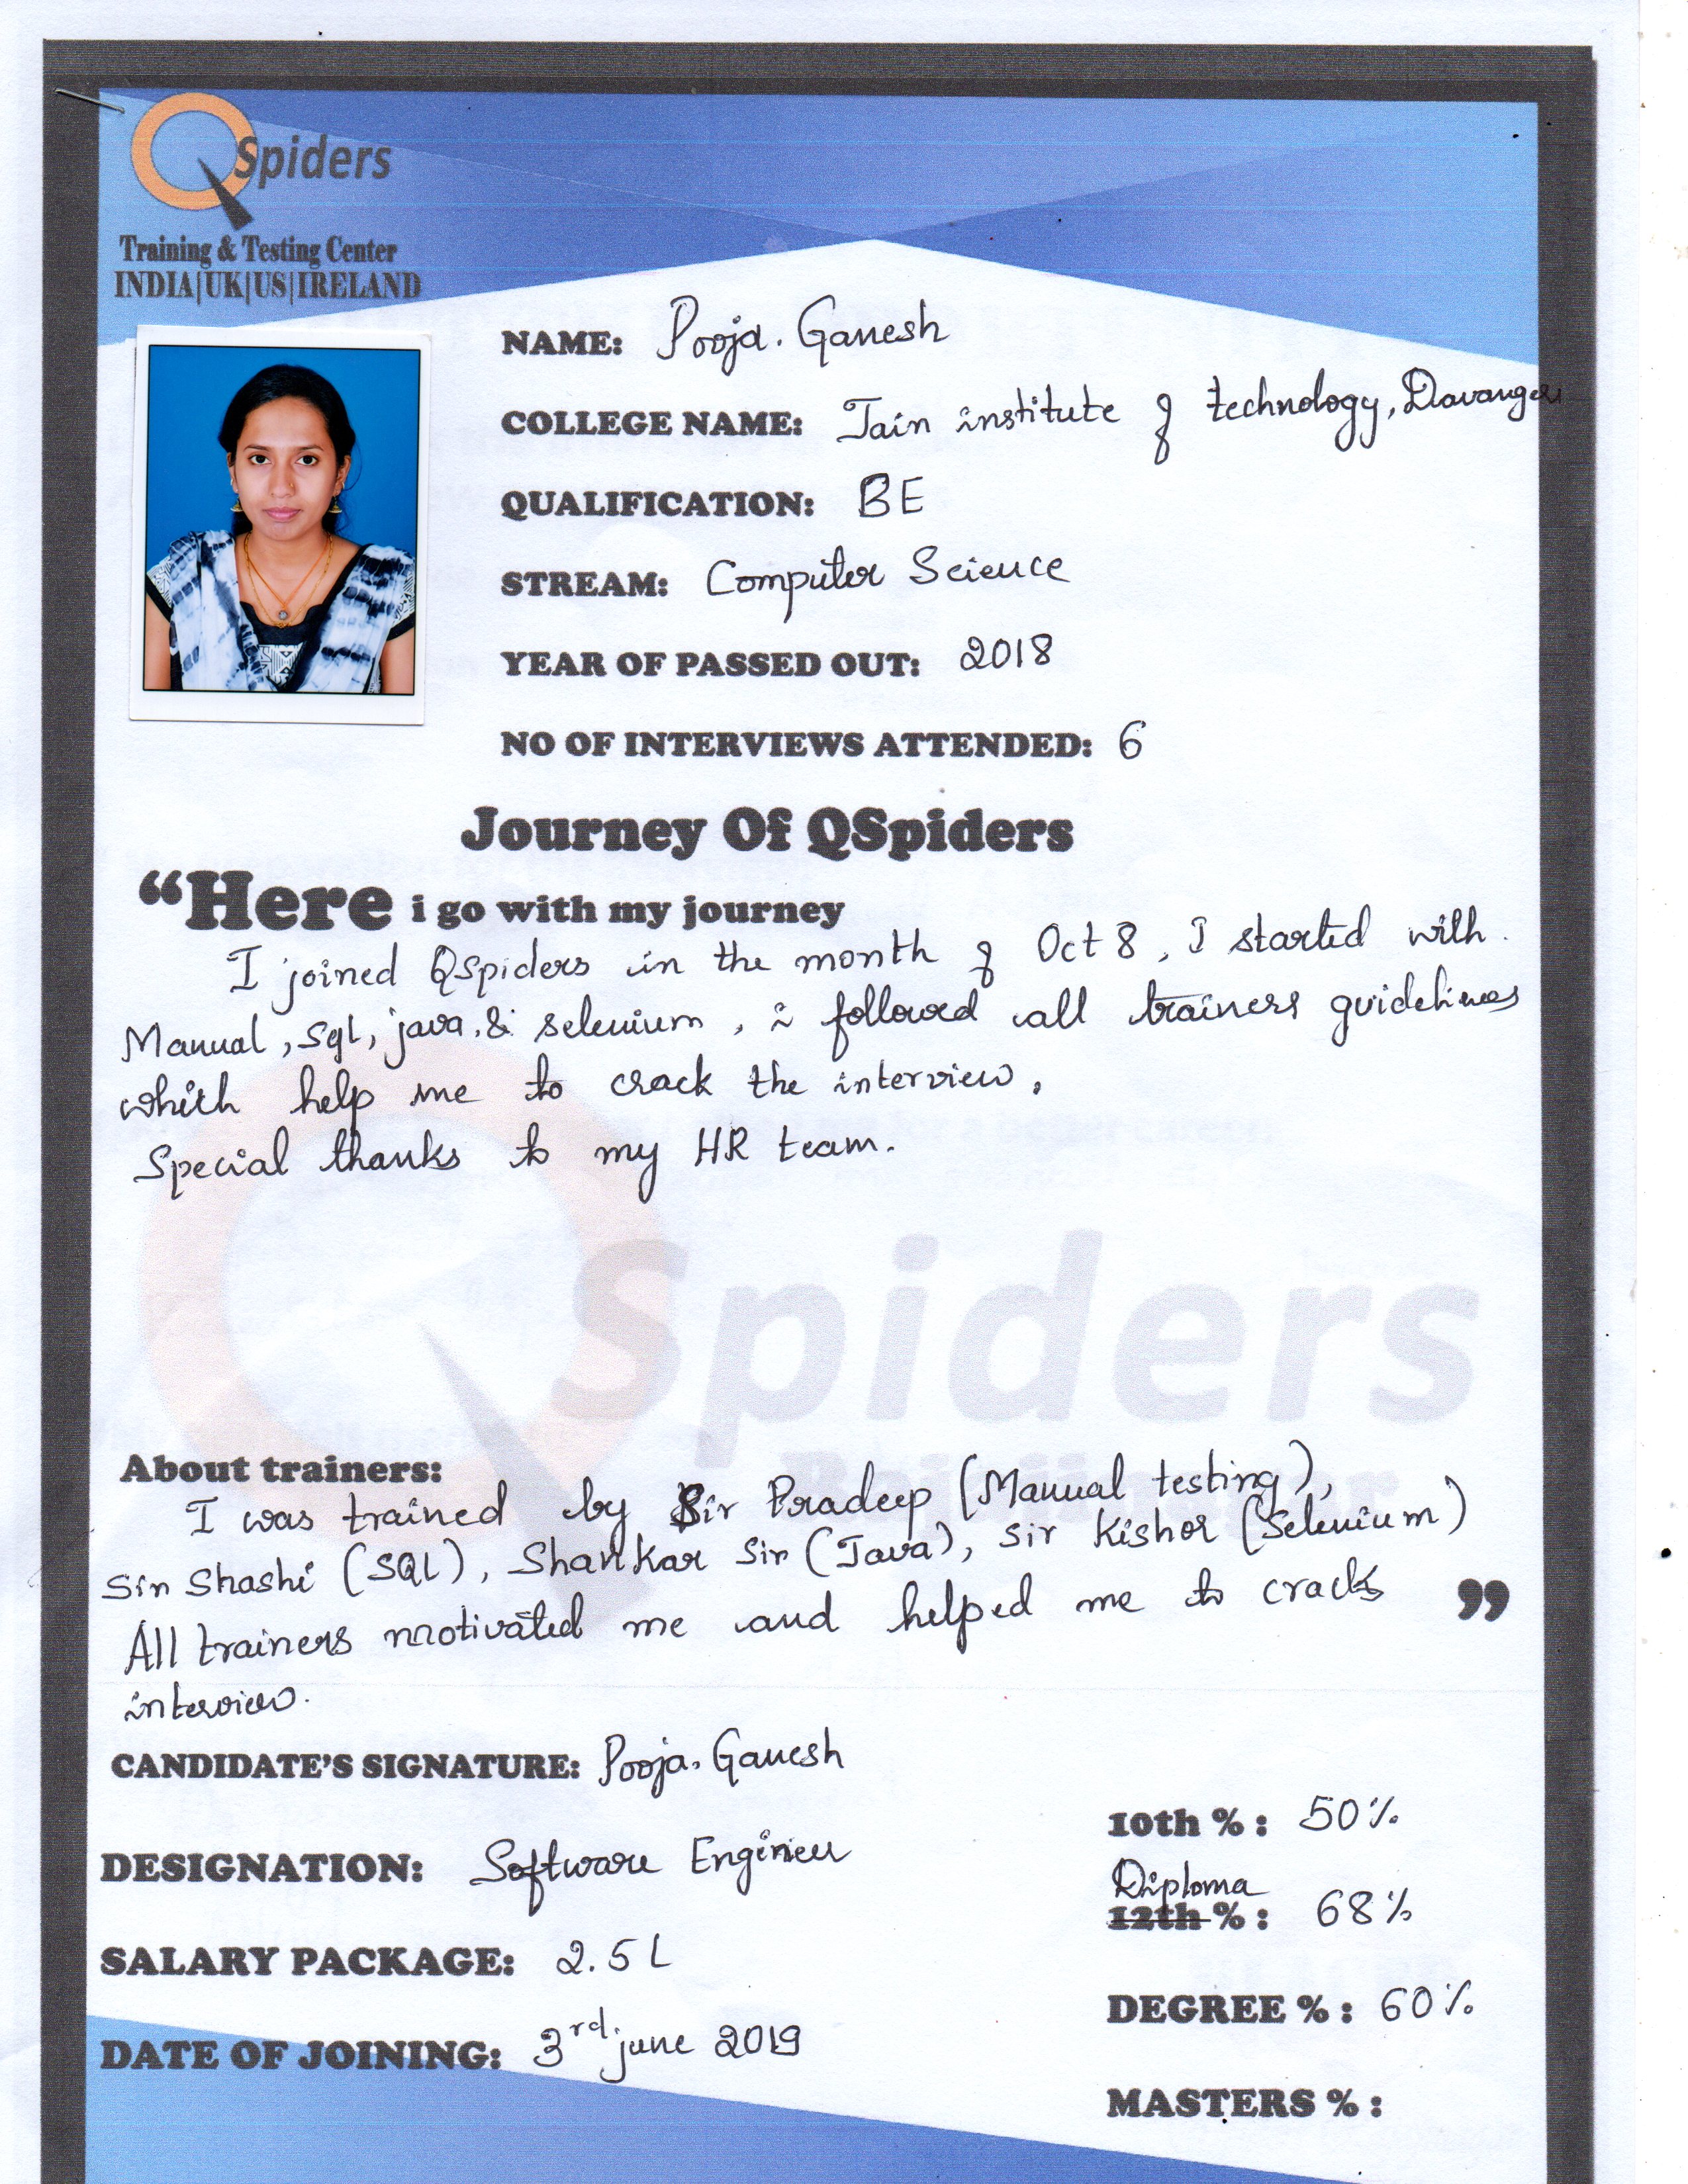 QSpiders
Training & Testing Center
INDIA|UK|US|IRELAND
NAME: Pooja. Ganesh
COLLEGE NAME: Jain institute of technology, Davangere
QUALIFICATION: BE
STREAM: Computer Science
YEAR OF PASSED OUT: 2018
NO OF INTERVIEWS ATTENDED: 6
Journey Of QSpiders
“Here i go with my journey
I joined QSpiders in the month of Oct 8, I started with
Manual, Sql, java, & selenium, i followed all trainers guidelines
which help me to crack the interview.
Special thanks to my HR team.
QSpiders
About trainers:
I was trained by Sir Pradeep (Manual testing),
Sir Shashi (SQL), Shankar Sir (Java), Sir Kishor (Selenium)
All trainers motivated me and helped me to crack ”
interview.
CANDIDATE'S SIGNATURE: Pooja. Ganesh
10th % : 50%
DESIGNATION: Software Engineer
Diploma
12th % : 68%
SALARY PACKAGE: 2.5 L
DEGREE % : 60%
DATE OF JOINING: 3rd june 2019
MASTERS % :